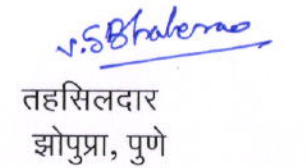 v.SBhalerao
तहसिलदार
झोपुप्रा, पुणे